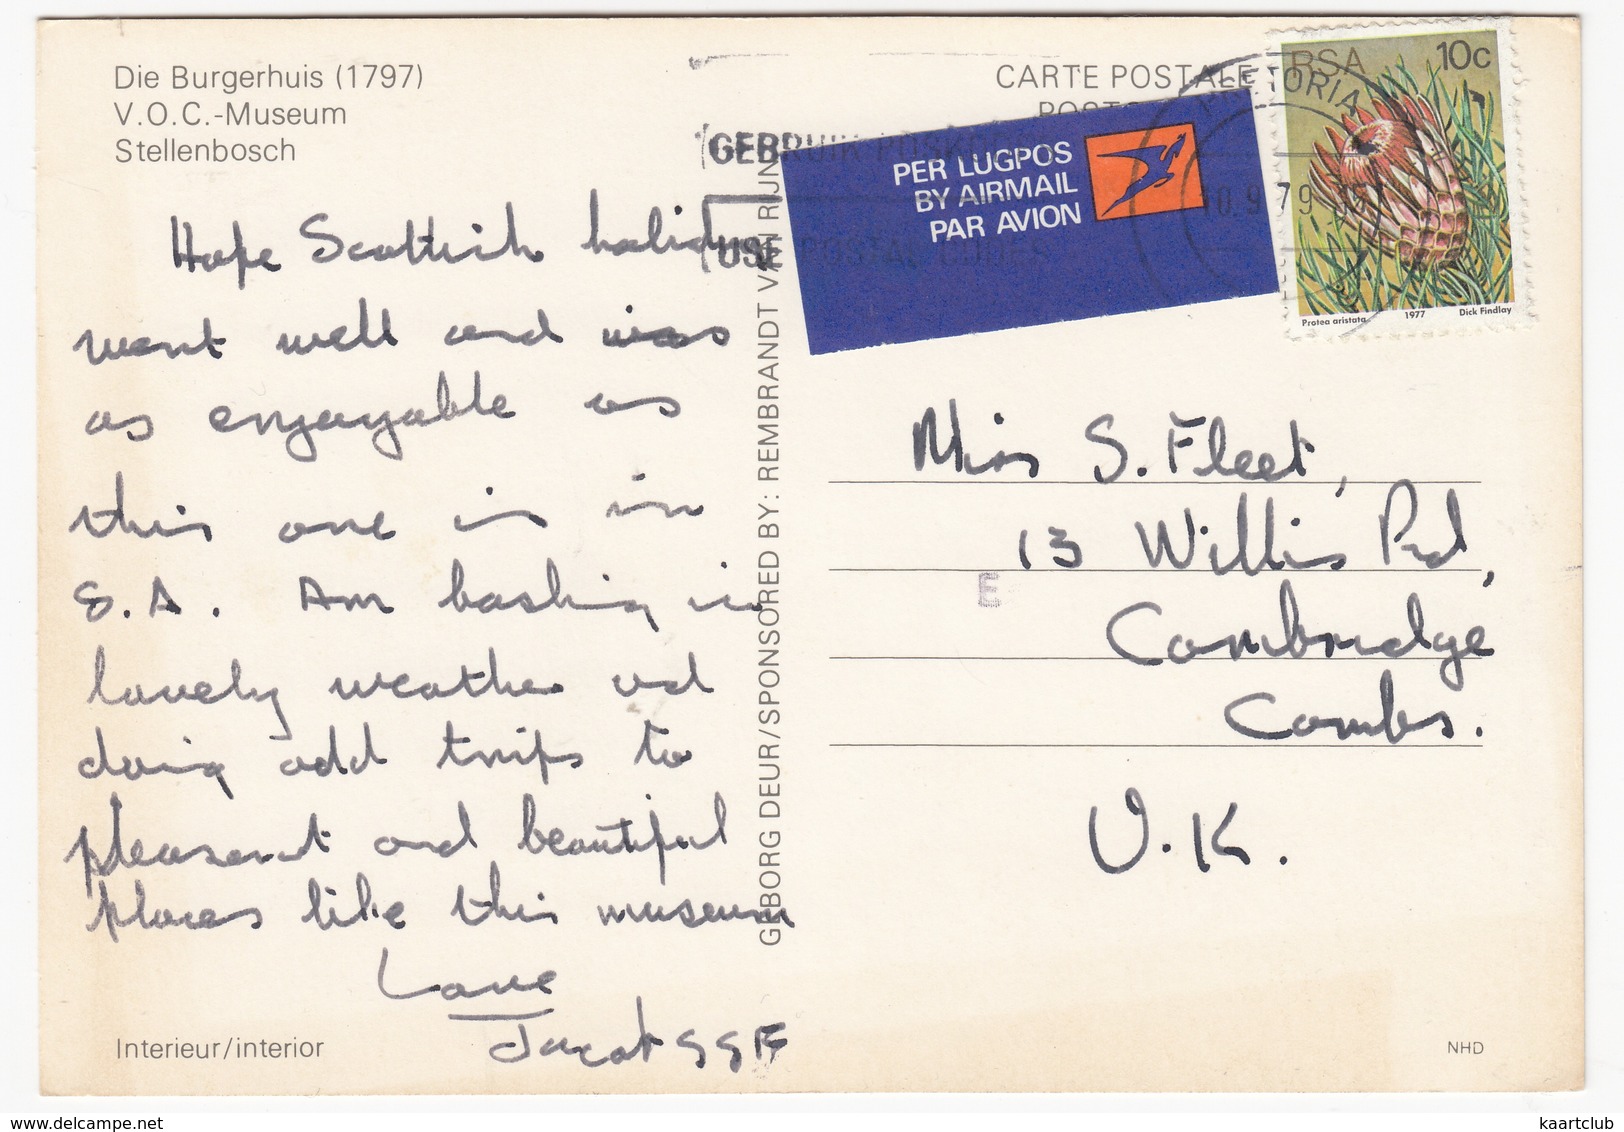 Die Burgerhuis (1797)
V.O.C.-Museum
Stellenbosch
Hope Scottish holiday
went well and was
as enjoyable as
this one is in
S.A. Am basking in
lovely weather and
doing odd trips to
pleasant and beautiful
places like this museum
Love
Interieur/interior
GEBORG DEUR/SPONSORED BY: REMBRANDT VAN RIJN
CARTE POSTALE
GEBRUIK POSKODES
USE POSTAL CODES
PER LUGPOS
BY AIRMAIL
PAR AVION
PRETORIA
10.9.79
RSA 10c
Protea aristata 1977 Dick Findlay
Miss S. Fleet,
13 Willis Rd,
E
Cambridge
Cambs.
U.K.
NHD
kaartclub